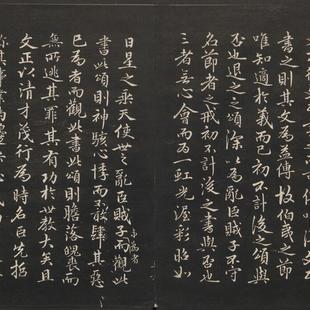 書之則其文為益傳故伯夷之節
唯知適於義而已初不計後之頌與
否也退之之頌深以為亂臣賊子不守
名節者之戒初不計後之書與否也
三者無心會而為一虹光渥彩昭如
日星之垂天使世之亂臣賊子而觀此
書此頌則神駭心悸而不敢肆其惡
已為者而觀此書此頌則膽落魄喪而
無所逃其罪其有功於世教大矣且
文正以清才茂行為時名臣先